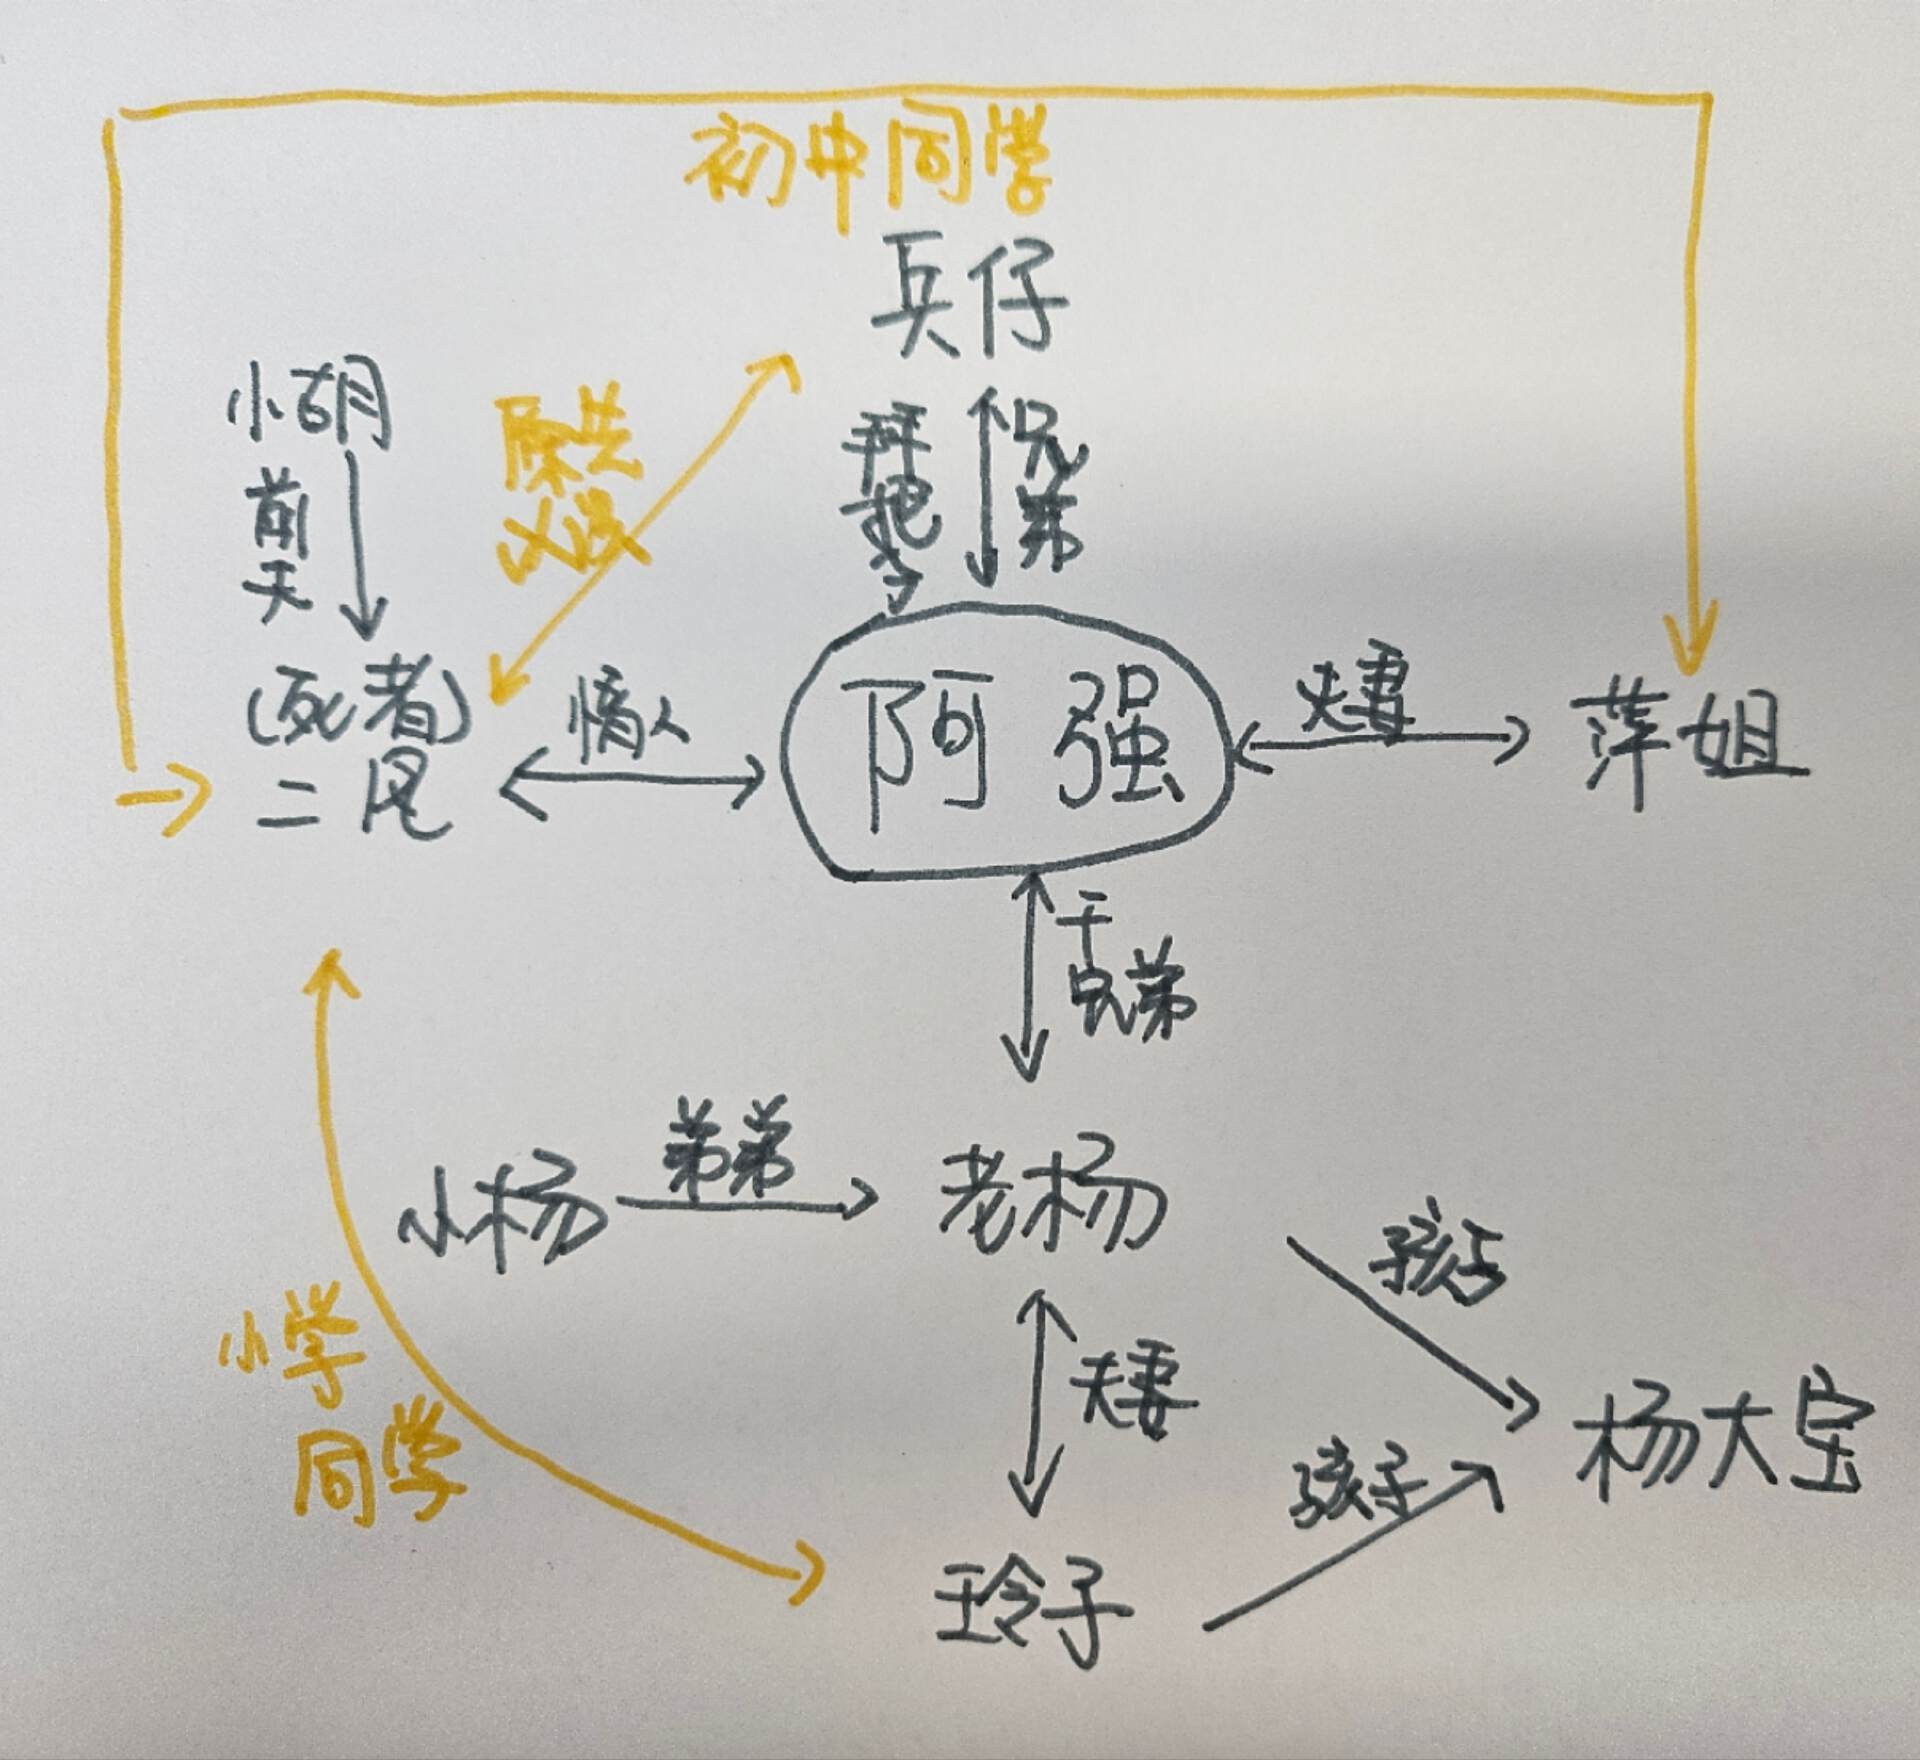 初中同学
兵仔
小胡
前夫
拜把子
兄弟
(死者)
二凤
情人
阿强
夫妻
萍姐
干
兄弟
小杨
弟弟
老杨
孩子
小学
同学
夫妻
杨大宝
孩子
玲子